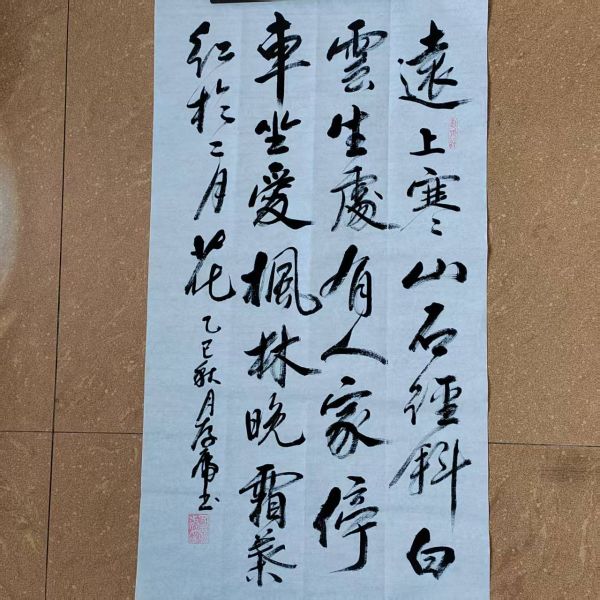 遠上寒山石徑斜白
雲生處有人家停
車坐愛楓林晚霜葉
紅於二月花
乙巳秋月存
書